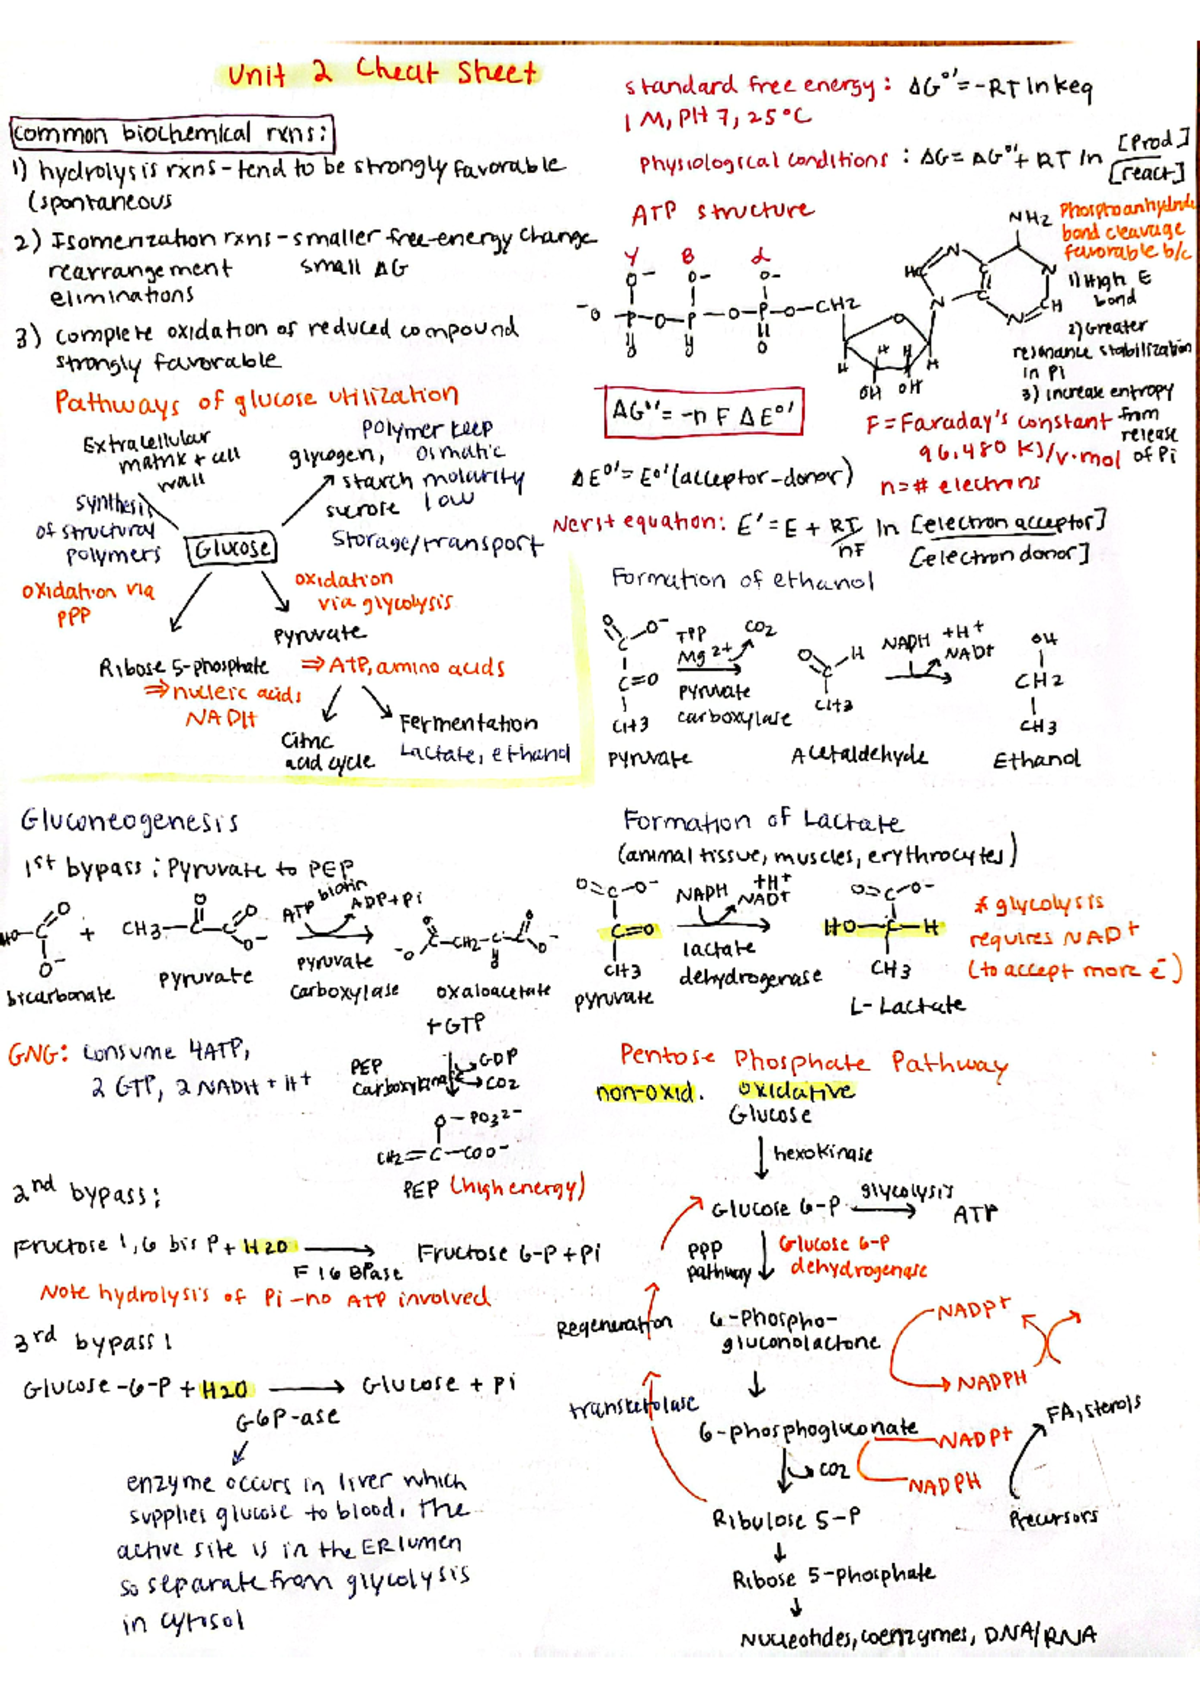 Unit 2 Cheat Sheet
common biochemical rxns:
1) hydrolysis rxns - tend to be strongly favorable
(spontaneous
2) Isomerization rxns - smaller free-energy change
rearrangement small ΔG
eliminations
3) complete oxidation of reduced compound
strongly favorable
Pathways of glucose utilization
Extracellular
matrix + cell
wall
synthesis
of structural
polymers
glycogen,
starch
sucrose
Polymer keep
osmatic
molarity
low
Storage/transport
Glucose
oxidation via
PPP
oxidation
via glycolysis
Pyruvate
Ribose 5-phosphate
⇒ nucleic acids
NADH
⇒ ATP, amino acids
Citric
acid cycle
Fermentation
Lactate, ethanol
standard free energy: ΔG°'=-RT ln keq
1 M, PH 7, 25°C
Physiological conditions: ΔG= ΔG°'+ RT ln [Prod]
[react]
ATP structure
γ B α
O- O- O-
-O-P-O-P-O-P-O-CH2
O O O
NH2
N
HC
N
C
C
N
N
CH
O
H H H H
OH OH
Phosphoanhydride
bond cleavage
favorable b/c
1) High E
bond
2) Greater
resonance stabilization
in Pi
3) increase entropy
from
release
of Pi
ΔG°'= -n F ΔE°'
F = Faraday's constant
96,480 KJ/v·mol
ΔE°'= E°'(acceptor-donor)
n=# electrons
Nerst equation: E'= E + RT ln [electron acceptor]
nF [electron donor]
Formation of ethanol
O O-
C
C=O
CH3
Pyruvate
TPP
Mg2+
CO2
pyruvate
carboxylase
O H
C
CH3
Acetaldehyde
NADH +H+
NAD+
OH
CH2
CH3
Ethanol
Gluconeogenesis
1st bypass: Pyruvate to PEP
HO-C O
O-
+
CH3-C-C O
O O-
bicarbonate
pyruvate
ATP biotin ADP+Pi
pyruvate
carboxylase
-O C-CH2-C-C O-
O O O
oxaloacetate
+ GTP
GNG: consume 4ATP,
2 GTP, 2 NADH + H+
PEP
carboxykinase
GDP
CO2
O-PO32-
CH2=C-COO-
PEP (high energy)
2nd bypass:
Fructose 1,6 bis P + H2O → Fructose 6-P + Pi
F 16 BPase
Note hydrolysis of Pi - no ATP involved
3rd bypass:
Glucose-6-P + H2O → Glucose + Pi
G6P-ase
enzyme occurs in liver which
supplies glucose to blood. The
active site is in the ER lumen
so separate from glycolysis
in cytosol
Formation of Lactate
(animal tissue, muscles, erythrocytes)
O=C-O-
C=O
CH3
pyruvate
NADH +H+
NAD+
lactate
dehydrogenase
O=C-O-
HO-C-H
CH3
L-Lactate
* glycolysis
requires NAD+
(to accept more e-)
Pentose Phosphate Pathway
non-oxid. oxidative
Glucose
hexokinase
Glucose 6-P glycolysis → ATP
PPP
pathway
Glucose 6-P
dehydrogenase
Regeneration
6-Phospho-
gluconolactone
NADP+
NADPH
transketolase
6-phosphogluconate
NADP+
CO2
NADPH
FA, sterols
Precursors
Ribulose 5-P
Ribose 5-phosphate
Nucleotides, coenzymes, DNA/RNA